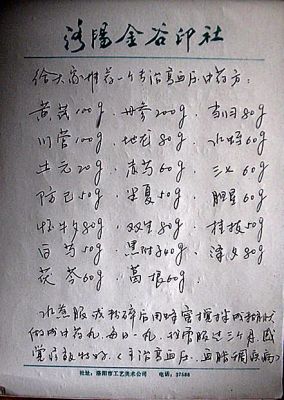 洛阳金谷印社
给大家推荐一个专治高血压中药方:
黄芪100g、丹参200g、当归80g
川芎100g、地龙80g、水蛭60g
土元20g、赤芍60g、三七60g
防己50g、半夏50g、胆星60g
怀牛夕80g、双生80g、桂枝50g
白芍50g、黑附子40g、泽夕80g
茯苓60g、葛根60g。
水煎服或粉碎后用蜂蜜搅拌成糊状
做成中药丸,每日一丸,我常服过三个月感
觉疗效特好(主治高血压、血脂稠疾病)
社址:洛阳市工艺美术公司 电话:27588